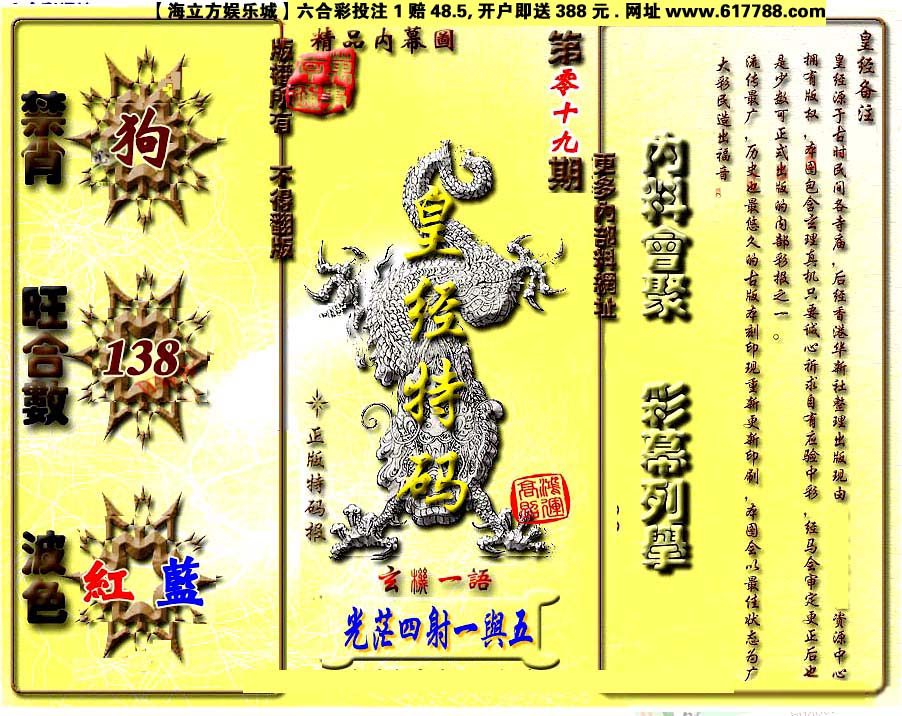 【海立方娱乐城】六合彩投注1赔48.5,开户即送388元.网址www.617788.com
精品内幕圖
版權所有 不得翻版
第零十九期
更多內部料網址
禁肖
狗
旺合數
138
波色
紅 藍
皇经特码
正版特码报
鴻運高照
玄機一語
光茫四射一與五
内料會聚
彩幕列舉
皇经备注
皇经源于古时民间各寺庙,后经香港华新社整理出版现由 资源中心
拥有版权,本图包含玄理真机只要诚心祈求自有应验中彩,经马会审定更正后也
是少数可正式出版的内部彩报之一。
流传最广,历史也最悠久的古版本刻印现重新更新印刷,本图会以最佳状态为广
大彩民造出福音